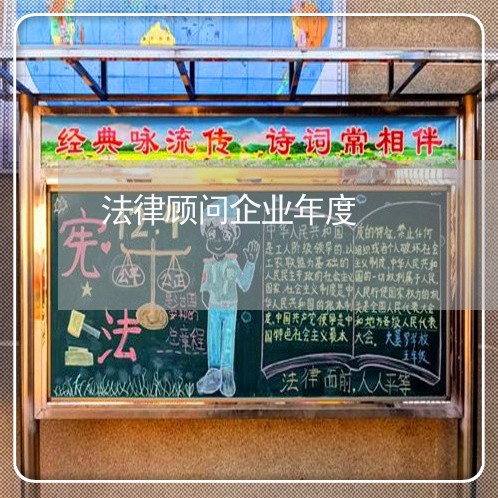 经典咏流传 诗词常相伴
法律顾问企业年度
宪法
12.4
公平
公正
总章程
中华人民共和国
是工人阶级领导的,以
工农联盟为基础的
人民民主专政的社会主义
国家,社会主义制度是中
华人民共和国的根本制
度,中国共产党领导是中
国特色社会主义最本
质的特征,禁止任何
组织或者个人破坏社会
主义制度,中华人民共和
国的一切权利属于人民,
人民行使国家权力的机
关是全国人民代表大会
和地方各级人民代表
大会。
五年级
法律面前,人人平等